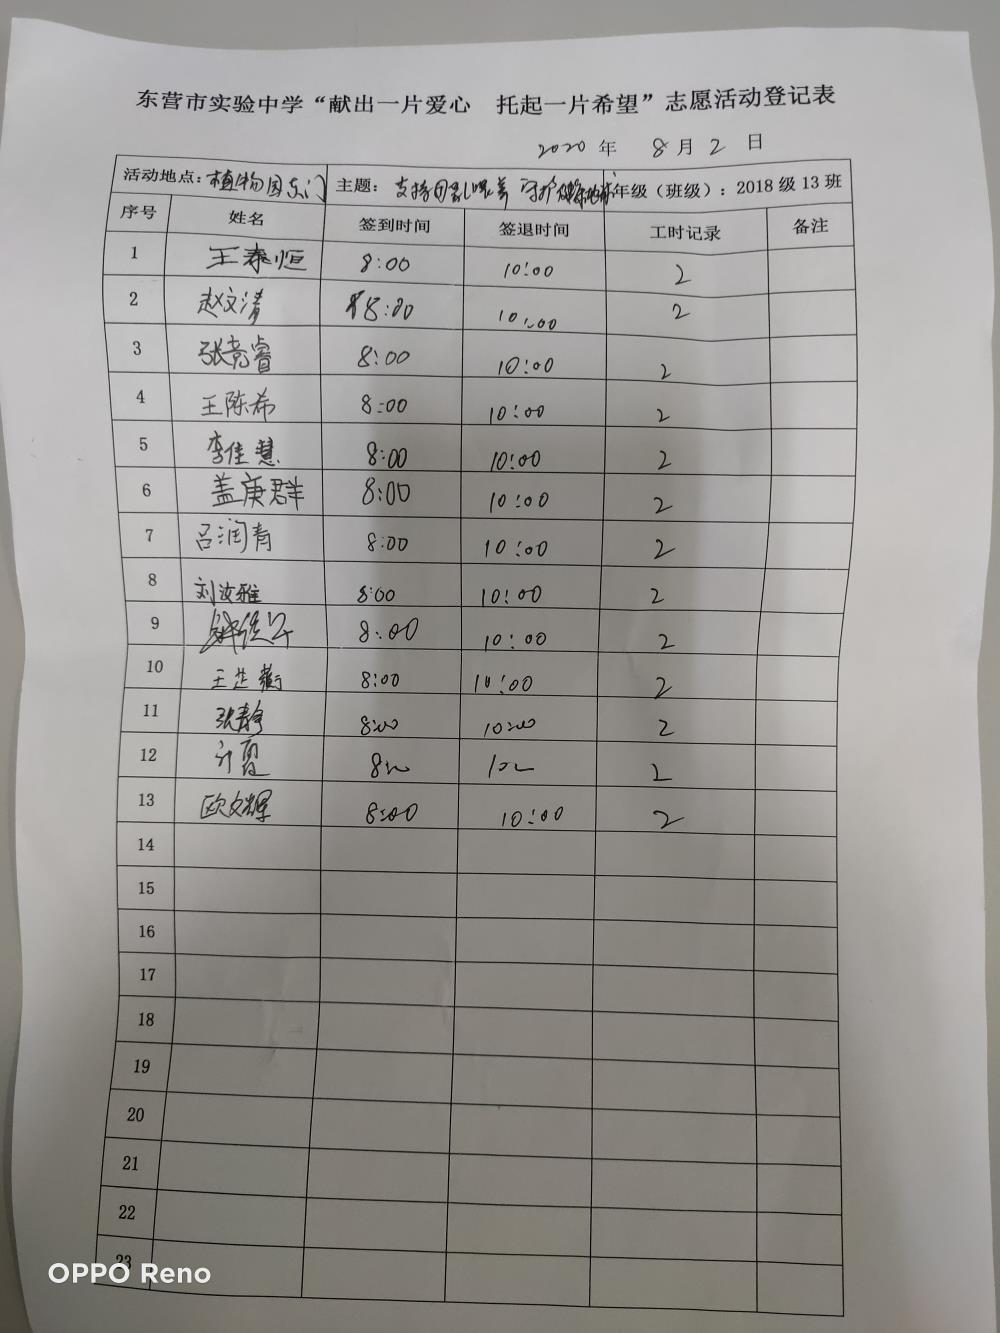 东营市实验中学“献出一片爱心 托起一片希望”志愿活动登记表
2020 年 8 月 2 日
活动地点：植物园东门 主题：支持 守护 年级（班级）：2018 级 13 班
序号 姓名 签到时间 签退时间 工时记录 备注
1 王泰恒 8:00 10:00 2
2 赵文清 8:00 10:00 2
3 张竞睿 8:00 10:00 2
4 王陈希 8:00 10:00 2
5 李佳慧 8:00 10:00 2
6 盖庚群 8:00 10:00 2
7 吕润青 8:00 10:00 2
8 刘汝雅 8:00 10:00 2
9 8:00 10:00 2
10 王芷蘅 8:00 10:00 2
11 张静 8:00 10:00 2
12 许夏 2
13 欧文辉 8:00 10:00 2
14
15
16
17
18
19
20
21
22
23
OPPO Reno